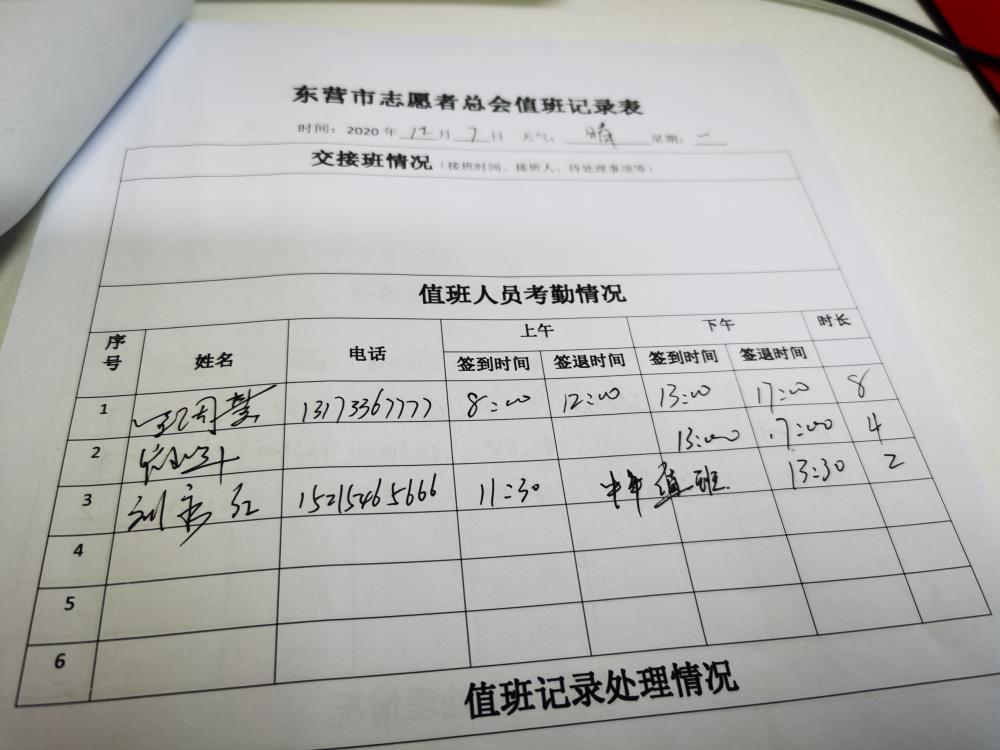 东营市志愿者总会值班记录表
时间：2020年 12月 7日 天气：晴 星期：一
交接班情况（接班时间、接班人、待处理事项等）
值班人员考勤情况
序号 姓名 电话 上午 下午 时长
签到时间 签退时间 签到时间 签退时间
1 13173367777 8:00 12:00 13:00 17:00 8
2 13:00 17:00 4
3 刘 红 15215465666 11:30 中午值班 13:30 2
4
5
6
值班记录处理情况